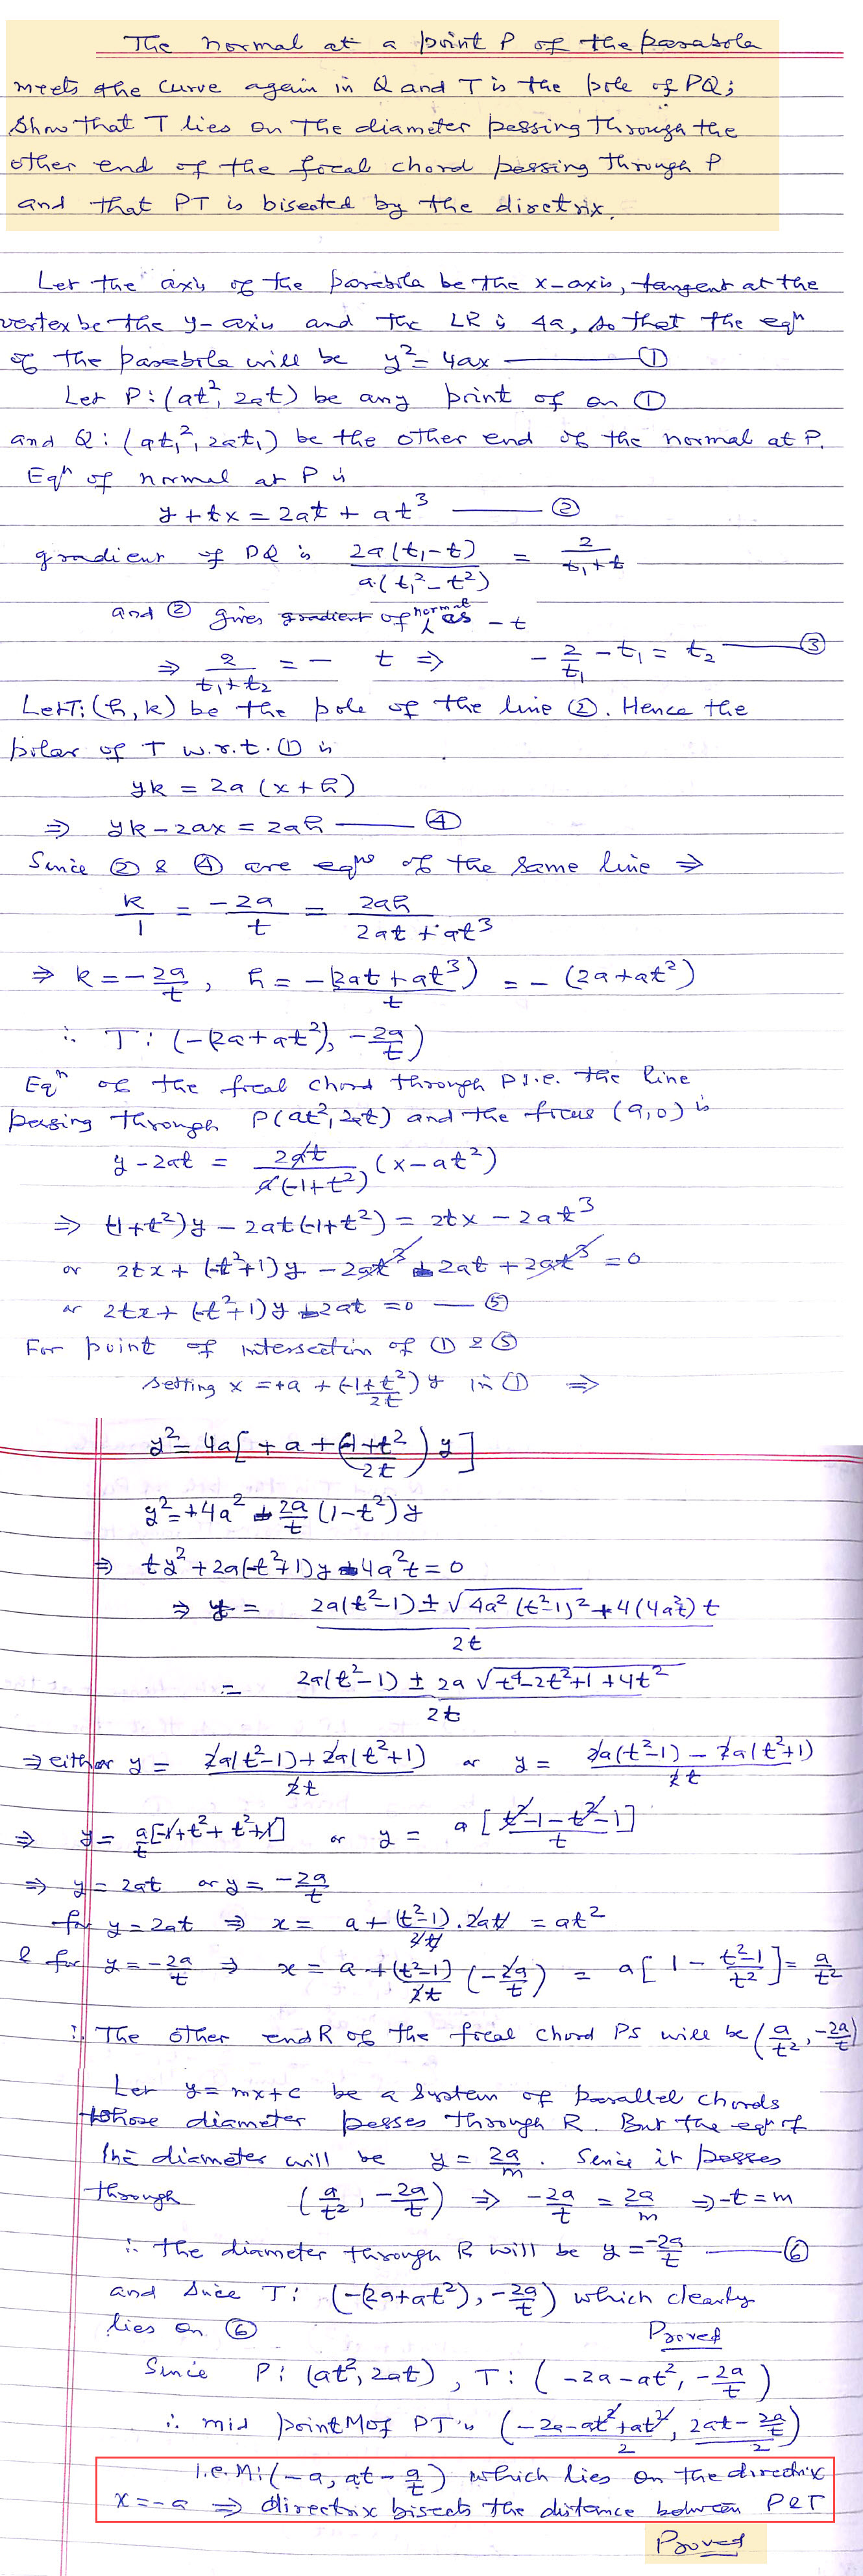 The normal at a point P of the parabola
meets the curve again in Q and T is the pole of PQ;
Show that T lies on the diameter passing through the
other end of the focal chord passing through P
and that PT is bisected by the directrix.
Let the axis of the parabola be the x-axis, tangent at the
vertex be the y-axis and the LR is 4a, so that the eqⁿ
of the parabola will be y² = 4ax —— ①
Let P:(at², 2at) be any print of on ①
and Q:(at₁², 2at₁) be the other end of the normal at P.
Eqⁿ of normal at P is
y + tx = 2at + at³ —— ②
gradient of PQ is 2a(t₁-t)/a(t₁²-t²) = 2/(t₁+t)
and ② gives gradient of normal as -t
⇒ 2/(t₁+t₂) = - t ⇒ -2/t₁ - t₁ = t₂ —— ③
Let T:(h,k) be the pole of the line ②. Hence the
polar of T w.r.t. ① is
yk = 2a(x+h)
⇒ yk - 2ax = 2ah —— ④
Since ② & ④ are eqⁿˢ of the same line ⇒
k/1 = -2a/t = 2ah/(2at + at³)
⇒ k = -2a/t, h = -(2at + at³)/t = -(2a+at²)
∴ T: (-(2a+at²), -2a/t)
Eqⁿ of the focal chord through P i.e. the line
passing through P(at², 2at) and the focus (a,0) is
y - 2at = 2at/a(-1+t²) (x - at²)
⇒ (-1+t²)y - 2at(-1+t²) = 2tx - 2at³
or 2tx + (-t²+1)y - 2at³ - 2at + 2at³ = 0
or 2tx + (-t²+1)y - 2at = 0 — ⑤
For point of intersection of ① & ⑤
setting x = +a + (-1+t²)/2t y in ① ⇒
y² = 4a[+a + (-1+t²)/2t) y]
y² = +4a² - 2a/t (1-t²)y
⇒ ty² + 2a(-t²+1)y - 4a²t = 0
⇒ y = 2a(t²-1) ± √4a²(t²-1)² + 4(4a²t)t / 2t
= 2a(t²-1) ± 2a √t⁴-2t²+1+4t² / 2t
⇒ either y = 2a(t²-1)+2a(t²+1) / 2t or y = 2a(t²-1) - 2a(t²+1) / 2t
⇒ y = a/t [-1+t²+t²+1] or y = a [t²-1-t²-1] / t
⇒ y = 2at or y = -2a/t
for y = 2at ⇒ x = a + (t²-1)/2t . 2at = at²
& for y = -2a/t ⇒ x = a + (t²-1)/2t (-2a/t) = a[1 - (t²-1)/t²] = a/t²
∴ The other end R of the focal chord PS will be (a/t², -2a/t)
Let y = mx+c be a system of parallel chords
whose diameter passes through R. But the eqⁿ of
the diameter will be y = 2a/m. Sence it passes
through (a/t², -2a/t) ⇒ -2a/t = 2a/m ⇒ -t = m
∴ the diameter through R will be y = -2a/t —— ⑥
and Since T: (-(2a+at²), -2a/t) which clearly
lies on ⑥
Proved
Since P: (at², 2at), T: (-2a-at², -2a/t)
∴ mid point M of PT is (-2a-at²+at²/2, 2at-2a/t/2)
i.e. M:(-a, at-a/t) which lies on the directrix
x = -a ⇒ directrix bisects the distance between P&T
Proved